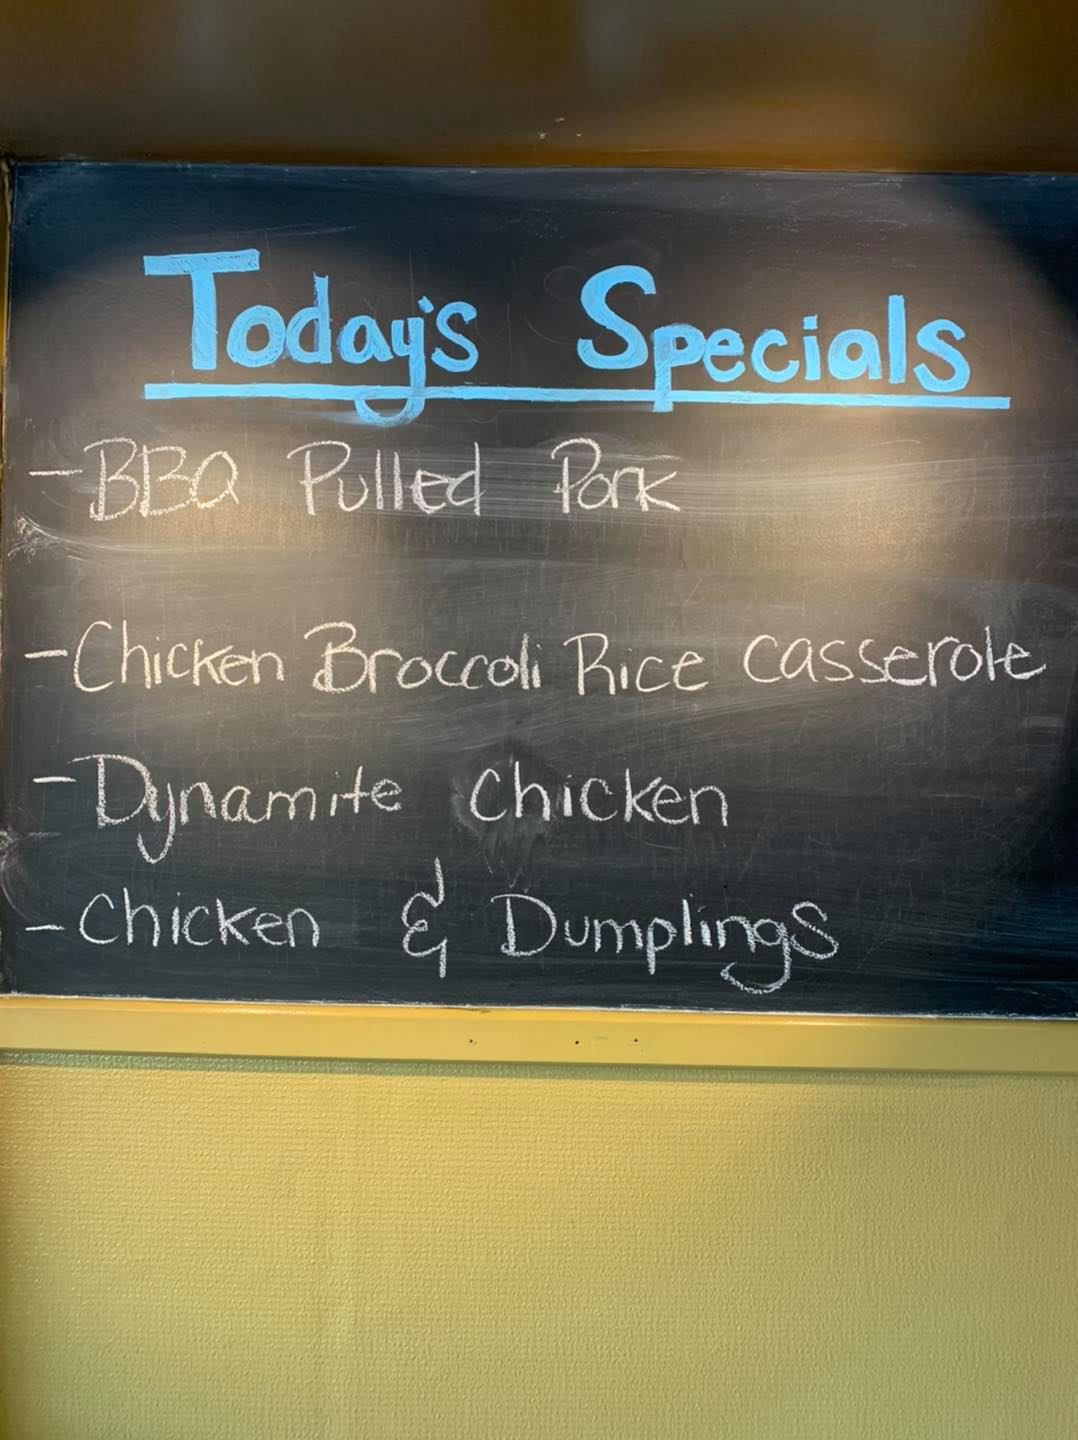 Today's Specials
- BBQ Pulled Pork
- Chicken Broccoli Rice Casserole
- Dynamite Chicken
- Chicken & Dumplings